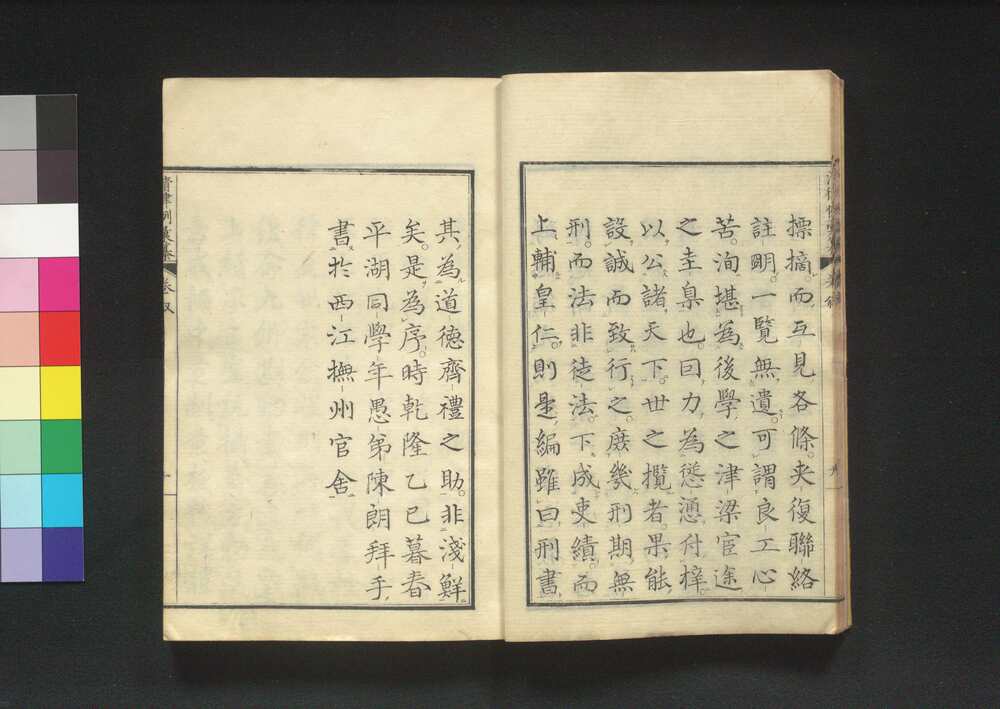 摽摘而互見各條夾復聯絡
註明一覽無遺可謂良工心
苦洵堪為後學之津梁宦途
之圭臬也囙力為慫慂付梓
以公諸天下世之攬者果能
設誠而致行之庶幾刑期無
刑而法非徒法下成吏績而
上輔皇仁則是編雖曰刑書
其為道德齊禮之助非淺鮮
矣是為序時乾隆乙巳暮春
平湖同學年愚弟陳朗拜手
書於西江撫州官舍